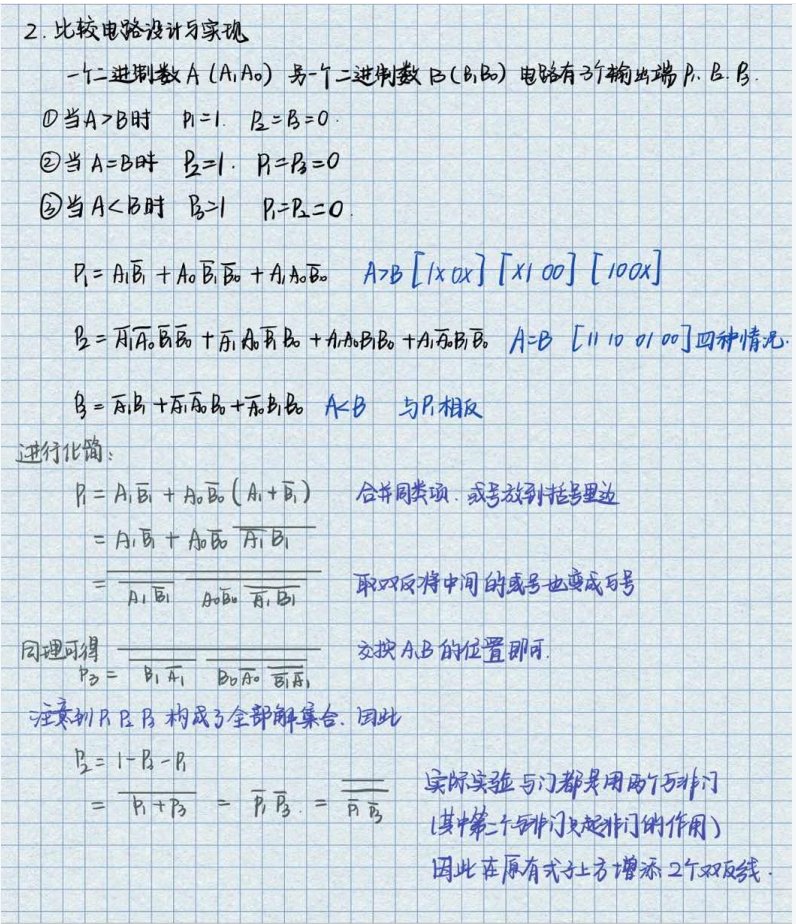 2. 比较电路设计与实现
一个二进制数 A (A₁A₀) 另一个二进制数 B (B₁B₀) 电路有3个输出端 P₁. P₂. P₃.
①当A>B时 P₁=1. P₂=P₃=0.
②当A=B时 P₂=1. P₁=P₃=0
③当A<B时 P₃=1 P₁=P₂=0.
P₁ = A₁B̅₁ + A₀B̅₁B̅₀ + A₁A₀B̅₀ A>B [1X0X] [X100] [100X]
P₂ = A̅₁A̅₀B̅₁B̅₀ + A̅₁A₀B̅₁B₀ + A₁A₀B₁B₀ + A₁A̅₀B₁B̅₀ A=B [11 10 01 00]四种情况.
P₃ = A̅₁B₁ + A̅₁A̅₀B₀ + A̅₀B₁B₀ A<B 与P₁相反
进行化简:
P₁ = A₁B̅₁ + A₀B̅₀ (A₁ + B̅₁) 合并同类项. 或号放到括号里边
= A₁B̅₁ + A₀B̅₀ \overline{A̅₁ B₁}
= \overline{\overline{A₁ B̅₁} \overline{A₀B̅₀ \overline{A̅₁ B₁}}} 取双反将中间的或号也变成与号
同理可得 P₃ = \overline{\overline{B₁ A̅₁} \overline{B₀A̅₀ \overline{B̅₁A̅₁}}} 交换A,B的位置即可.
注意到 P₁ P₂ P₃ 构成了全部解集合. 因此
P₂ = 1 - P₃ - P₁
= \overline{P₁ + P₃} = P̅₁ P̅₃. = \overline{\overline{P̅₁ P̅₃}} 实际实验与门都是用两个与非门
(其中第二个与非门只起非门的作用)
因此在原有式子上方增添2个双反线.